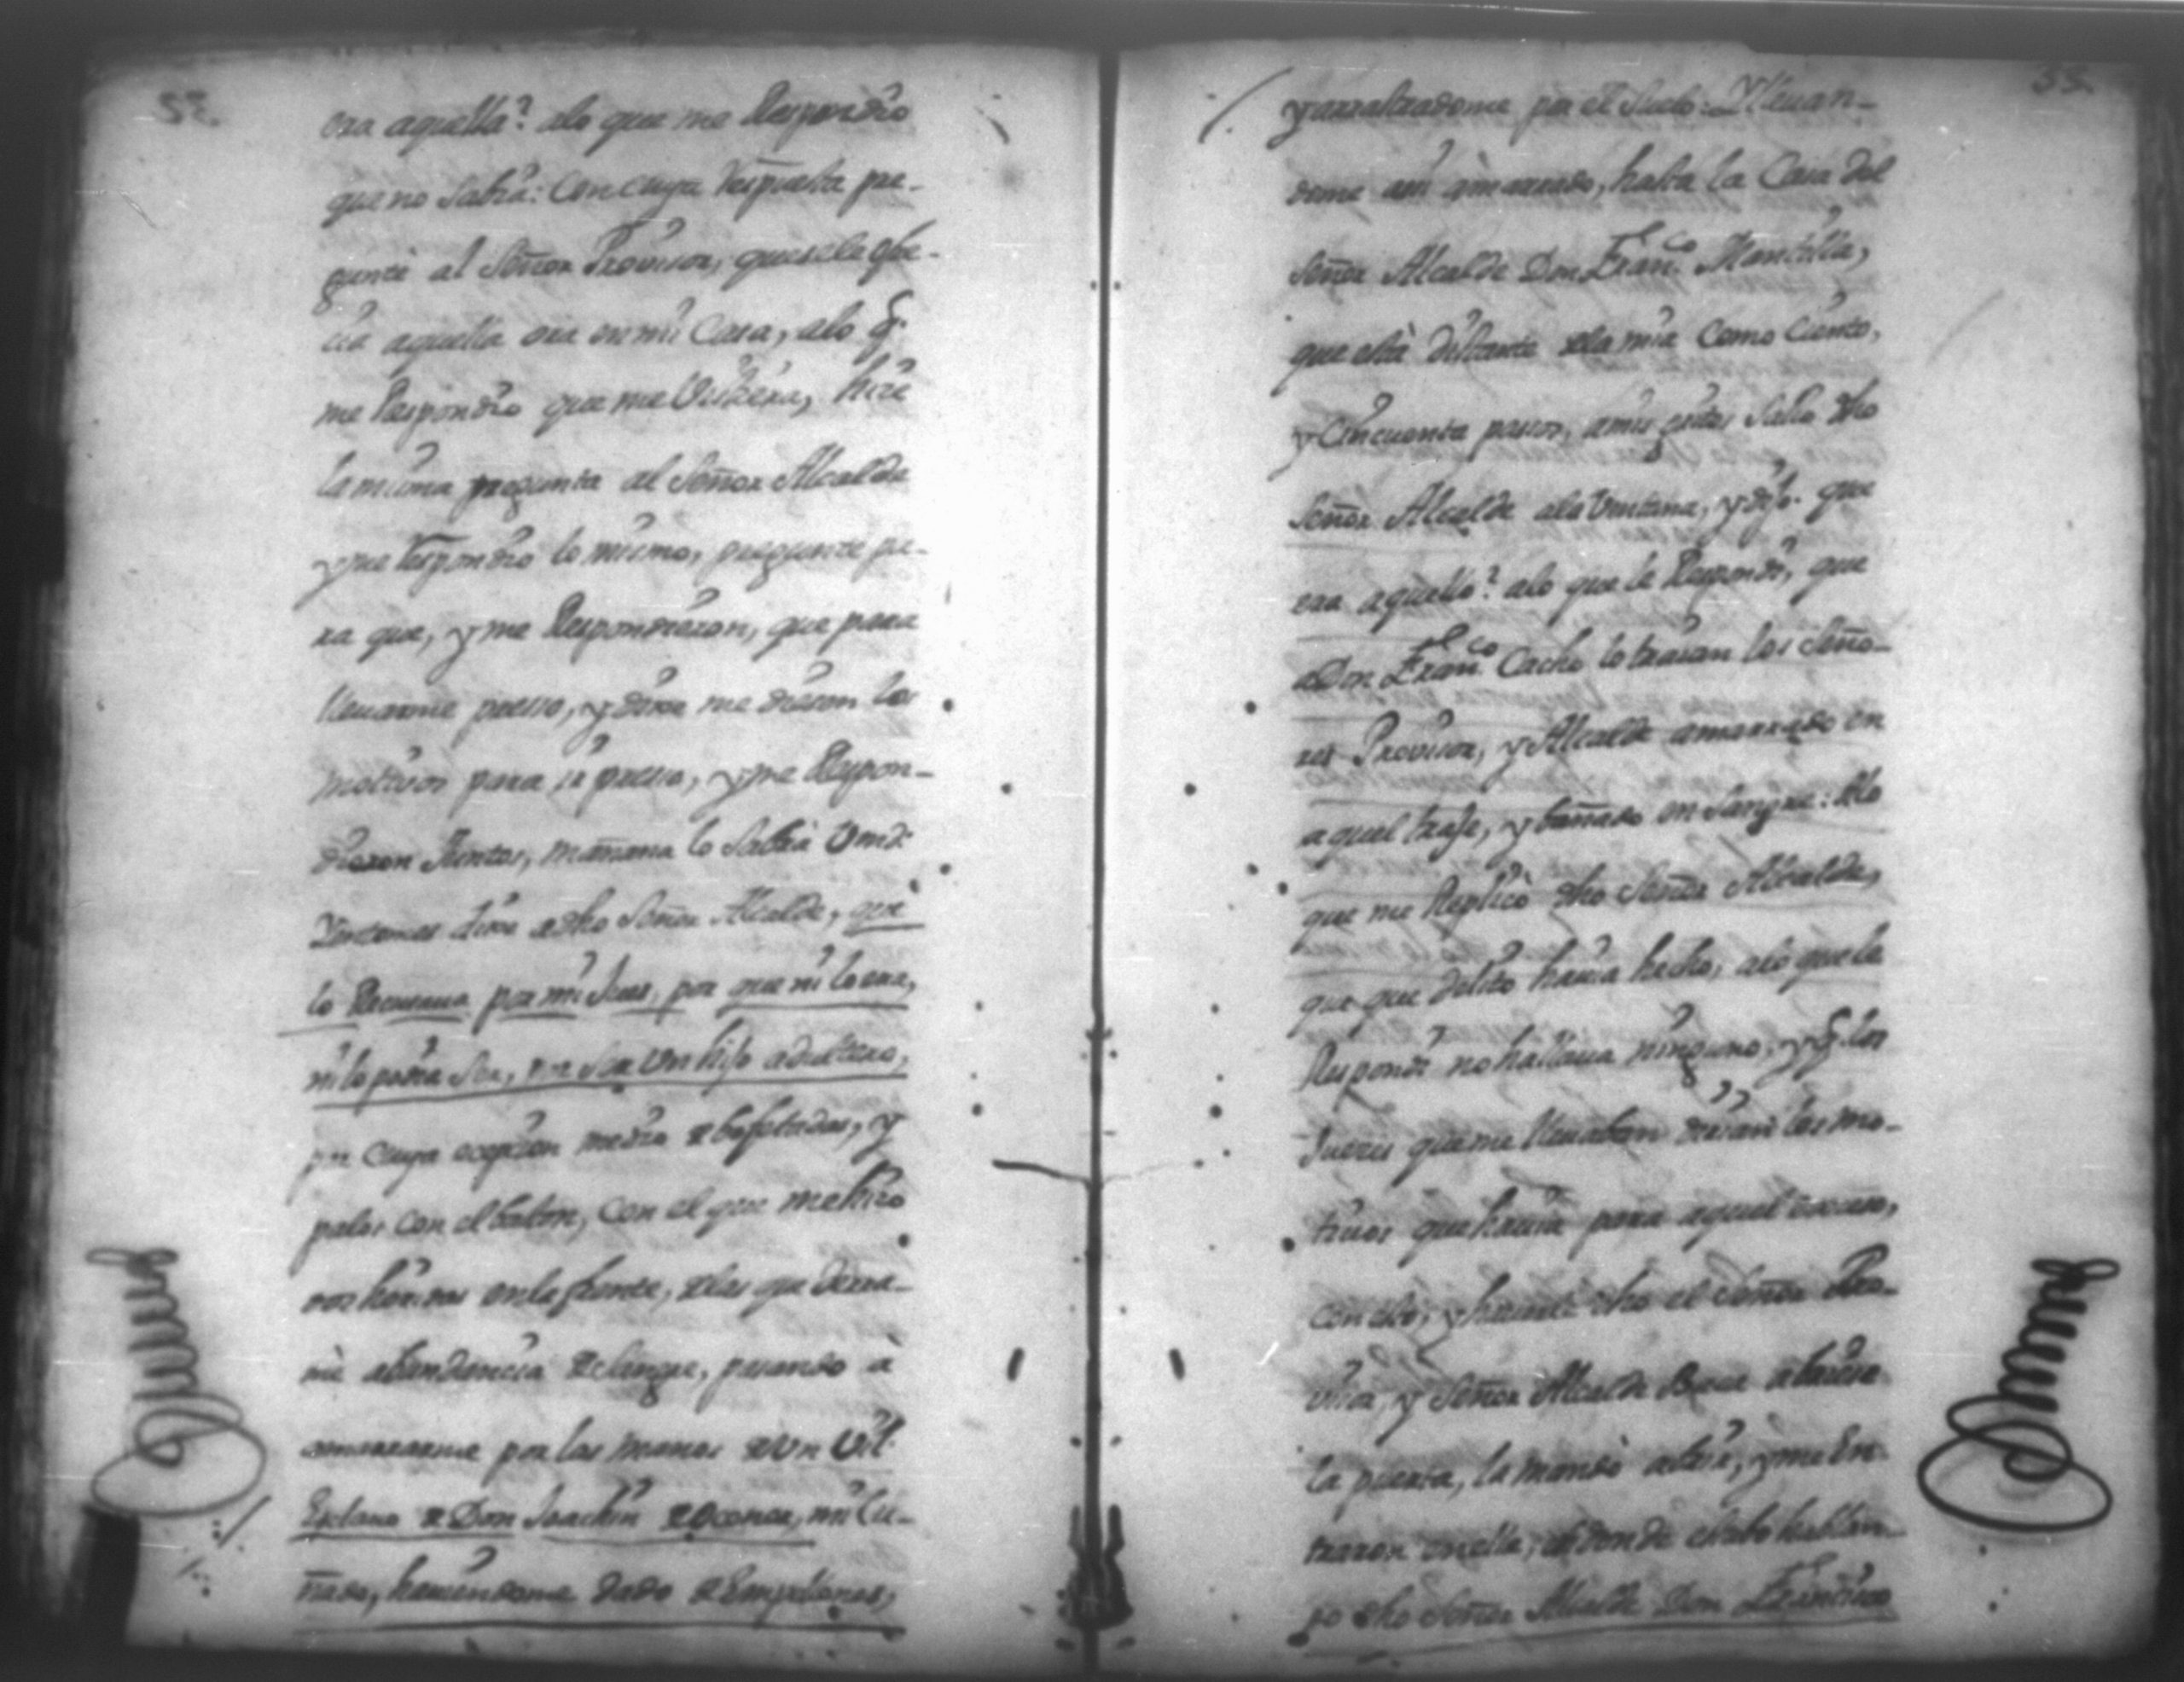 era aquella? alo que me Respondio
que no Sabia: Con cuya Respuesta pre-
gunte al Señor Provisor, que se le ofre-
cia aquella ora en mi Casa, alo q.
me Respondio que me Vistiera, hize
la misma pregunta al Señor Alcalde
y me Respondio lo mismo, pregunte pa-
ra que, y me Respondieron, que para
lleuarme preso, y dixe me diesen los
motivos para ir preso, y me Respon-
dieron Juntos, mañana lo Sabra Vmd.
Entonces dixe a dho Señor Alcalde, que
lo Recusaua por mi Juez, por que ni lo era,
ni lo podia Ser, por Ser Un hijo adultero,
por cuya ecepcion me dio de bofetadas, y
palos con el baston, con el que me hizo
dos heridas en la frente, de las que derra-
mè abundancia de sangre, pasando à
amarrarme por las manos de Un Vil
Esclavo de Don Joachin de Oconor, mi Cu-
ñado, haviendome dado de Empellones,
33
y arrastradome por el Suelo: Y lleuan-
dome asi amarrado, hasta la Casa del
Señor Alcalde Don Franco. Mantilla,
que està distante de la mia Como Ciento,
y Cincuenta pasos, a mis gritos Salio dho
Señor Alcalde ala Ventana, y dijo. que
era aquello? alo que le Respondi, que
a Don Franco. Cacho lo traian los Seño-
res Provisor, y Alcalde amarrado en
aquel traje, y bañado en Sangre: Alo
que me Replicò dho Señor Alcalde,
que que delito havia hecho, alo que le
Respondi no hallaua ninguno, y q. los
Juezes que me lleuaban dirian los mo-
tivos que havia para aquel exceso,
con esto, y haverle dho el Señor Pro-
visor, y Señor Alcalde que abriese
la puerta, la mandò abrir, y me En-
traron en ella, en donde estubo hablan-
do dho Señor Alcalde Don Francisco